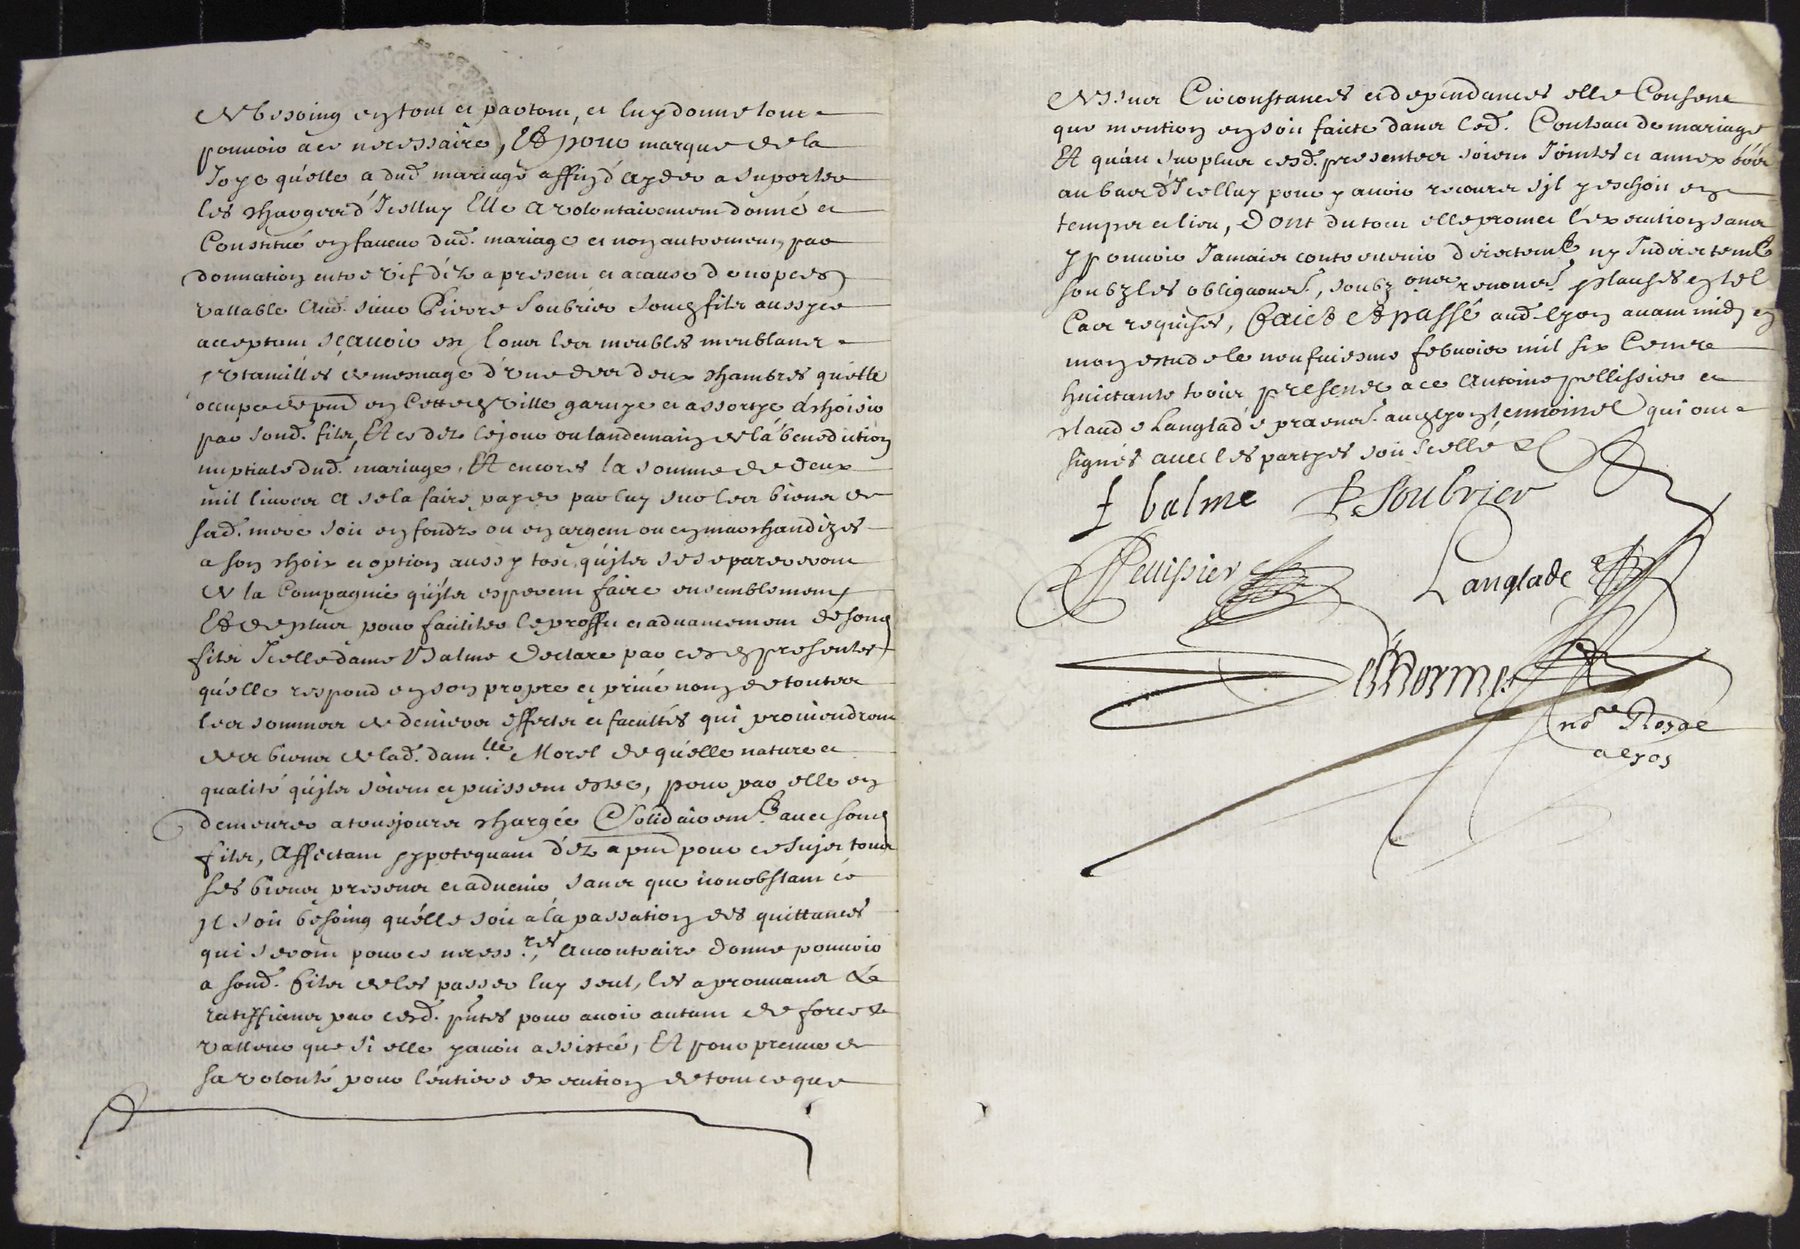 de besoing en tout et partout, et luy donne tout
pouvoir a ce necessaire, Et pour marque de la
Joye qu'elle a dud. mariage affin d'ayder a suporter
les charges d'Icelluy Elle a volontairement donné et
Constitué en faveur dud. mariage et non autrement, par
donnation entre vif d'ez a present et a cause de nopces
vallable Aud. sieur Pierre Soubrier son filz aussy ce
acceptant sçavoir est tous les meubles meublants
ustamilles de mesnage d'une des deux chambres qu'elle
occupe de pnt en Cette ville garnye et assortye a choisir
par sond. filz, Et ce dez le jour ou landemain de la benediction
nuptiale dud. mariage, Et encores la somme de deux
mil livres a se la faire payer par luy sur les biens de
sad. mere soit en fondz ou en argent ou en marchandizes
a son choix et option aussy tost qu'ilz se separeront
de la Compagnie qu'ilz esperent faire ensemblement
Et de plus pour faciliter le proffit et advancement de son
filz Icelle dame Balme declare par ces presentes
qu'elle respond en son propre et privé nom de toutes
les sommes de deniers effects et facultés qui proviendront
des biens de lad. dam.lle Morel de qu'elle nature et
qualité qu'ilz soient et puissent estre, pour par elle en
demeurer a tousjours chargée Solidairemt. avec son
filz, Affectant yppotequant d'ez a pnt pour ce sujet tous
ses biens presens et advenir sans que nonobstant ce
Il soit besoing qu'elle soit a la passation des quittances
qui seront pour ce necess.res, Au contraire donne pouvoir
a sond. filz de les passer luy seul, les aprouvant &
ratiffiant par cesd. pntes pour avoir autant de force &
valleur que si elle y avoit assisté, Et pour preuve de
sa volonté pour l'entiere execution de tout ce que
dessus Circonstances et dependances elle Consent
que mention en soit faicte dans led. Contract de mariage
Et qu'au surplus cesd. presentes soient Jointes et annexées
au bas d'Icelluy pour y avoir recours s'il y eschoit en
temps et lieu, Dont du tout elle promet l'execution sans
y pouvoir Jamais contrevenir directemt. ny Indirectemt.
soubz les obligaons., soubz.ons renonc. & clauses en tel
Cas requises, Faict et passé aud. Lyon avant midy en
mon estude le neufuiesme febvrier mil six Cents
huictante trois presents a ce Antoine Pellissier et
Claude Langlade praticns. aud. Lyon tesmoins qui ont
signés avec les partyes soit scellé &
f balme P. Soubrier
Pellissier Langlade
Delhorme
no.re Royal
a Lyon